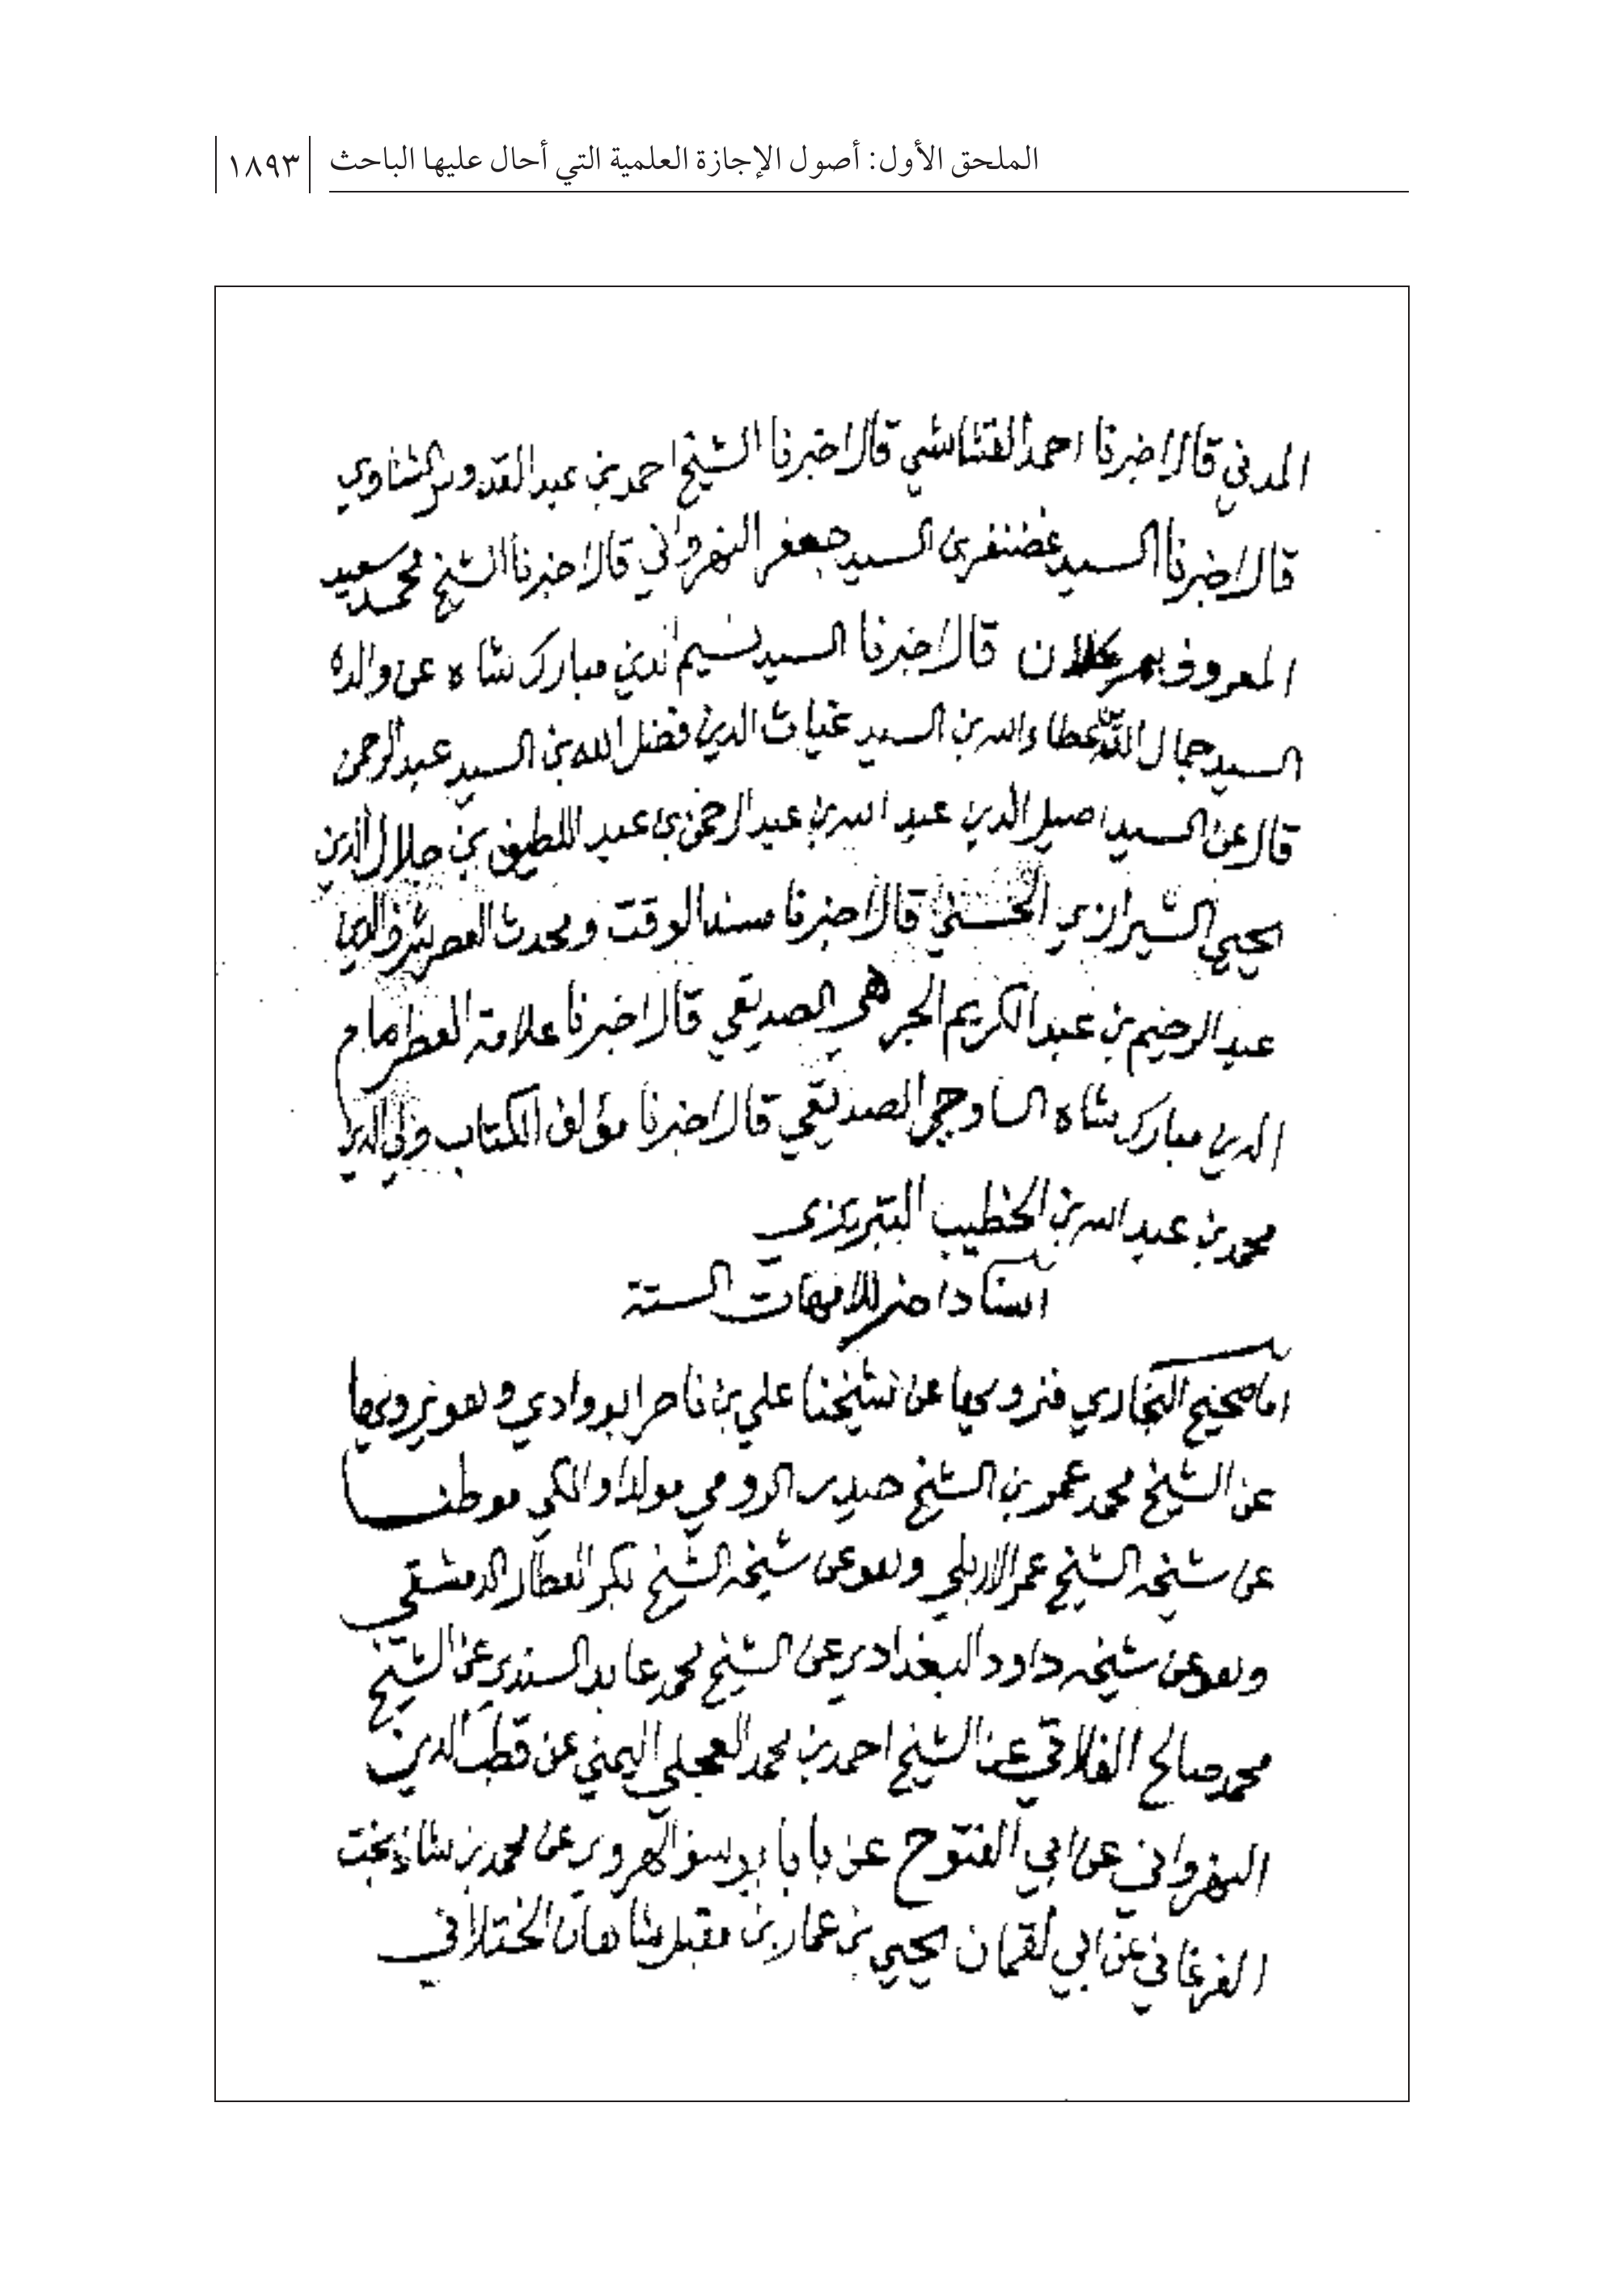 الملحق الأول: أصول الإجازة العلمية التي أحال عليها الباحث ١٨٩٣
المدني قال اخبرنا احمد القشاشي قال اخبرنا الشيخ احمد بن عبد القدوس الشناوي
قال اخبرنا السيد غضنفر بن السيد جعفر النهرواني قال اخبرنا الشيخ محمد سعيد
المعروف بمير كلان قال اخبرنا السيد نسيم الدين مبارك شاه عن والده
السيد جمال الدين عطاء الله بن السيد غياث الدين فضل الله بن السيد عبد الرحمن
قال عن السيد اصيل الدين عبد الله بن عبد الرحمن بن عبد اللطيف بن جلال الدين
يحيى الشيرازي الحسني قال اخبرنا مسند الوقت ومحدث العصر شرف الدين
عبد الرحيم بن عبد الكريم الجرهي الصديقي قال اخبرنا علامة العصر امام
الدين مبارك شاه الساوجي الصديقي قال اخبرنا مؤلف الكتاب ولي الدين
محمد بن عبد الله بن الخطيب التبريزي
اسناد اخر للامهات الستة
اما صحيح البخاري فنرويها عن شيخنا علي بن ناصر ابو وادي وهو يرويها
عن الشيخ محمد عمر بن الشيخ حيدر الرومي مولدا والمكي موطنا
عن شيخه الشيخ عمر الاربلي وهو عن شيخه الشيخ بكر العطار الدمشقي
وهو عن شيخه داود البغدادي عن الشيخ محمد عابد السندي عن الشيخ
محمد صالح الفلاني عن الشيخ احمد بن محمد العجلي اليمني عن قطب الدين
النهرواني عن ابي الفتوح عن بابا يوسف الهروي عن محمد بن شاذ بخت
الفرغاني عن ابي لقمان يحيى بن عمار بن مقبل شاهان الختلاني